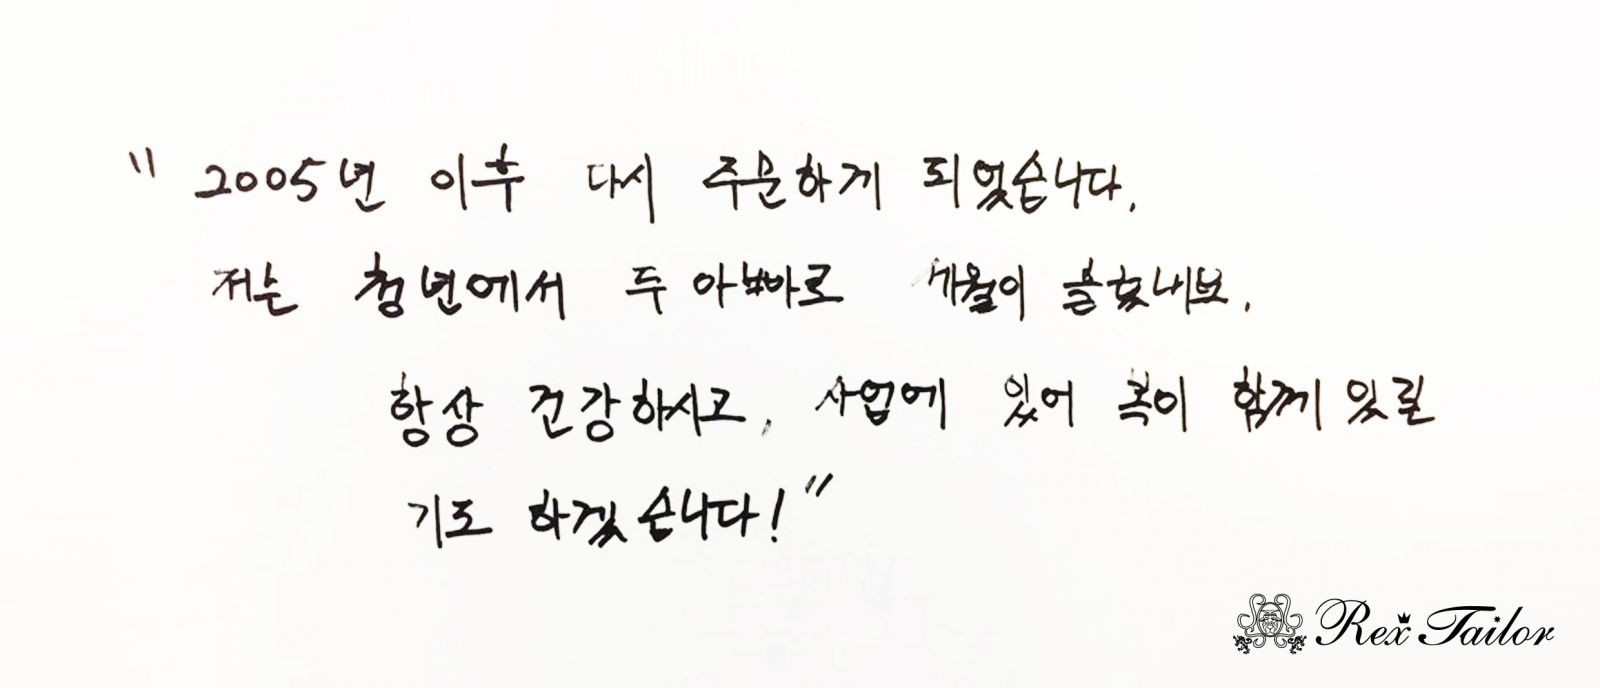 "2005년 이후 다시 주문하게 되었습니다.
저는 청년에서 두 아빠로 세월이 흘렀네요.
항상 건강하시고, 사업에 있어 복이 함께 있길
기도 하겠습니다!"
Rex Tailor